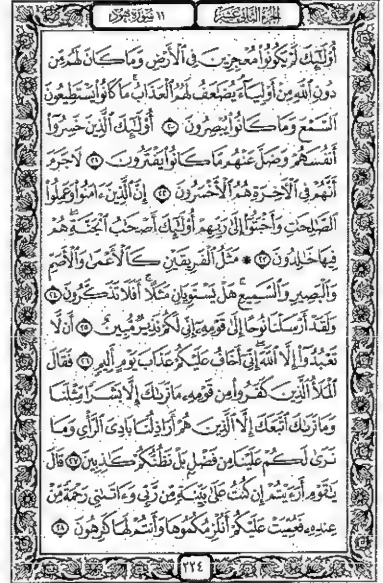 الجزء الثاني عشر
١١ سورة هود
أُوْلَٰٓئِكَ لَمۡ يَكُونُواْ مُعۡجِزِينَ فِي ٱلۡأَرۡضِ وَمَا كَانَ لَهُم مِّن
دُونِ ٱللَّهِ مِنۡ أَوۡلِيَآءَۘ يُضَٰعَفُ لَهُمُ ٱلۡعَذَابُۚ مَا كَانُواْ يَسۡتَطِيعُونَ
ٱلسَّمۡعَ وَمَا كَانُواْ يُبۡصِرُونَ ٢٠ أُوْلَٰٓئِكَ ٱلَّذِينَ خَسِرُوٓاْ
أَنفُسَهُمۡ وَضَلَّ عَنۡهُم مَّا كَانُواْ يَفۡتَرُونَ ٢١ لَا جَرَمَ
أَنَّهُمۡ فِي ٱلۡأٓخِرَةِ هُمُ ٱلۡأَخۡسَرُونَ ٢٢ إِنَّ ٱلَّذِينَ ءَامَنُواْ وَعَمِلُواْ
ٱلصَّٰلِحَٰتِ وَأَخۡبَتُوٓاْ إِلَىٰ رَبِّهِمۡ أُوْلَٰٓئِكَ أَصۡحَٰبُ ٱلۡجَنَّةِۖ هُمۡ
فِيهَا خَٰلِدُونَ ٢٣ ۞ مَثَلُ ٱلۡفَرِيقَيۡنِ كَٱلۡأَعۡمَىٰ وَٱلۡأَصَمِّ
وَٱلۡبَصِيرِ وَٱلسَّمِيعِۚ هَلۡ يَسۡتَوِيَانِ مَثَلًاۚ أَفَلَا تَذَكَّرُونَ ٢٤
وَلَقَدۡ أَرۡسَلۡنَا نُوحًا إِلَىٰ قَوۡمِهِۦٓ إِنِّي لَكُمۡ نَذِيرٞ مُّبِينٌ ٢٥ أَن لَّا
تَعۡبُدُوٓاْ إِلَّا ٱللَّهَۖ إِنِّيٓ أَخَافُ عَلَيۡكُمۡ عَذَابَ يَوۡمٍ أَلِيمٖ ٢٦ فَقَالَ
ٱلۡمَلَأُ ٱلَّذِينَ كَفَرُواْ مِن قَوۡمِهِۦ مَا نَرَىٰكَ إِلَّا بَشَرٗا مِّثۡلَنَا
وَمَا نَرَىٰكَ ٱتَّبَعَكَ إِلَّا ٱلَّذِينَ هُمۡ أَرَاذِلُنَا بَادِيَ ٱلرَّأۡيِ وَمَا
نَرَىٰ لَكُمۡ عَلَيۡنَا مِن فَضۡلِۭ بَلۡ نَظُنُّكُمۡ كَٰذِبِينَ ٢٧ قَالَ
يَٰقَوۡمِ أَرَءَيۡتُمۡ إِن كُنتُ عَلَىٰ بَيِّنَةٖ مِّن رَّبِّي وَءَاتَىٰنِي رَحۡمَةٗ مِّنۡ
عِندِهِۦ فَعُمِّيَتۡ عَلَيۡكُمۡ أَنُلۡزِمُكُمُوهَا وَأَنتُمۡ لَهَا كَٰرِهُونَ ٢٨
٢٢٤